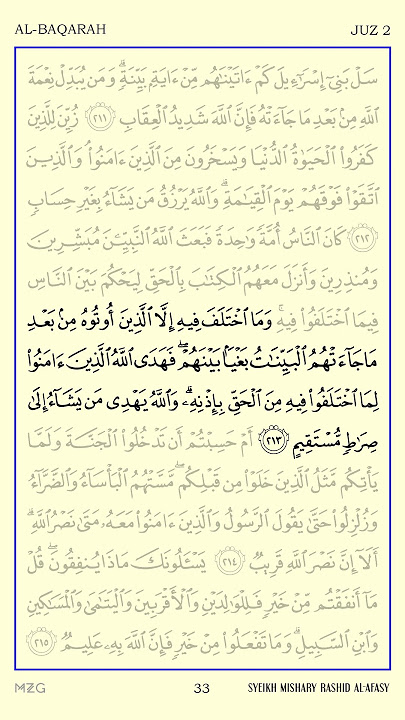 AL-BAQARAH
JUZ 2
سَلْ بَنِيٓ إِسْرَٰٓءِيلَ كَمْ ءَاتَيْنَٰهُم مِّنْ ءَايَةٍۭ بَيِّنَةٍۗ وَمَن يُبَدِّلْ نِعْمَةَ
ٱللَّهِ مِنۢ بَعْدِ مَا جَآءَتْهُ فَإِنَّ ٱللَّهَ شَدِيدُ ٱلْعِقَابِ ٢١١ زُيِّنَ لِلَّذِينَ
كَفَرُوا۟ ٱلْحَيَوٰةُ ٱلدُّنْيَا وَيَسْخَرُونَ مِنَ ٱلَّذِينَ ءَامَنُوا۟ۘ وَٱلَّذِينَ
ٱتَّقَوْا۟ فَوْقَهُمْ يَوْمَ ٱلْقِيَٰمَةِۗ وَٱللَّهُ يَرْزُقُ مَن يَشَآءُ بِغَيْرِ حِسَابٍ
٢١٢ كَانَ ٱلنَّاسُ أُمَّةً وَٰحِدَةً فَبَعَثَ ٱللَّهُ ٱلنَّبِيِّـۧنَ مُبَشِّرِينَ
وَمُنذِرِينَ وَأَنزَلَ مَعَهُمُ ٱلْكِتَٰبَ بِٱلْحَقِّ لِيَحْكُمَ بَيْنَ ٱلنَّاسِ
فِيمَا ٱخْتَلَفُوا۟ فِيهِۚ وَمَا ٱخْتَلَفَ فِيهِ إِلَّا ٱلَّذِينَ أُوتُوهُ مِنۢ بَعْدِ
مَا جَآءَتْهُمُ ٱلْبَيِّنَٰتُ بَغْيًۢا بَيْنَهُمْۖ فَهَدَى ٱللَّهُ ٱلَّذِينَ ءَامَنُوا۟
لِمَا ٱخْتَلَفُوا۟ فِيهِ مِنَ ٱلْحَقِّ بِإِذْنِهِۦۗ وَٱللَّهُ يَهْدِى مَن يَشَآءُ إِلَىٰ
صِرَٰطٍ مُّسْتَقِيمٍ ٢١٣ أَمْ حَسِبْتُمْ أَن تَدْخُلُوا۟ ٱلْجَنَّةَ وَلَمَّا
يَأْتِكُم مَّثَلُ ٱلَّذِينَ خَلَوْا۟ مِن قَبْلِكُمۖ مَّسَّتْهُمُ ٱلْبَأْسَآءُ وَٱلضَّرَّآءُ
وَزُلْزِلُوا۟ حَتَّىٰ يَقُولَ ٱلرَّسُولُ وَٱلَّذِينَ ءَامَنُوا۟ مَعَهُۥ مَتَىٰ نَصْرُ ٱللَّهِۗ
أَلَآ إِنَّ نَصْرَ ٱللَّهِ قَرِيبٌ ٢١٤ يَسْـَٔلُونَكَ مَاذَا يُنفِقُونَۖ قُلْ
مَآ أَنفَقْتُم مِّنْ خَيْرٍ فَلِلْوَٰلِدَيْنِ وَٱلْأَقْرَبِينَ وَٱلْيَتَٰمَىٰ وَٱلْمَسَٰكِينِ
وَٱبْنِ ٱلسَّبِيلِۗ وَمَا تَفْعَلُوا۟ مِنْ خَيْرٍ فَإِنَّ ٱللَّهَ بِهِۦ عَلِيمٌ ٢١٥
MZG
33
SYEIKH MISHARY RASHID AL-AFASY